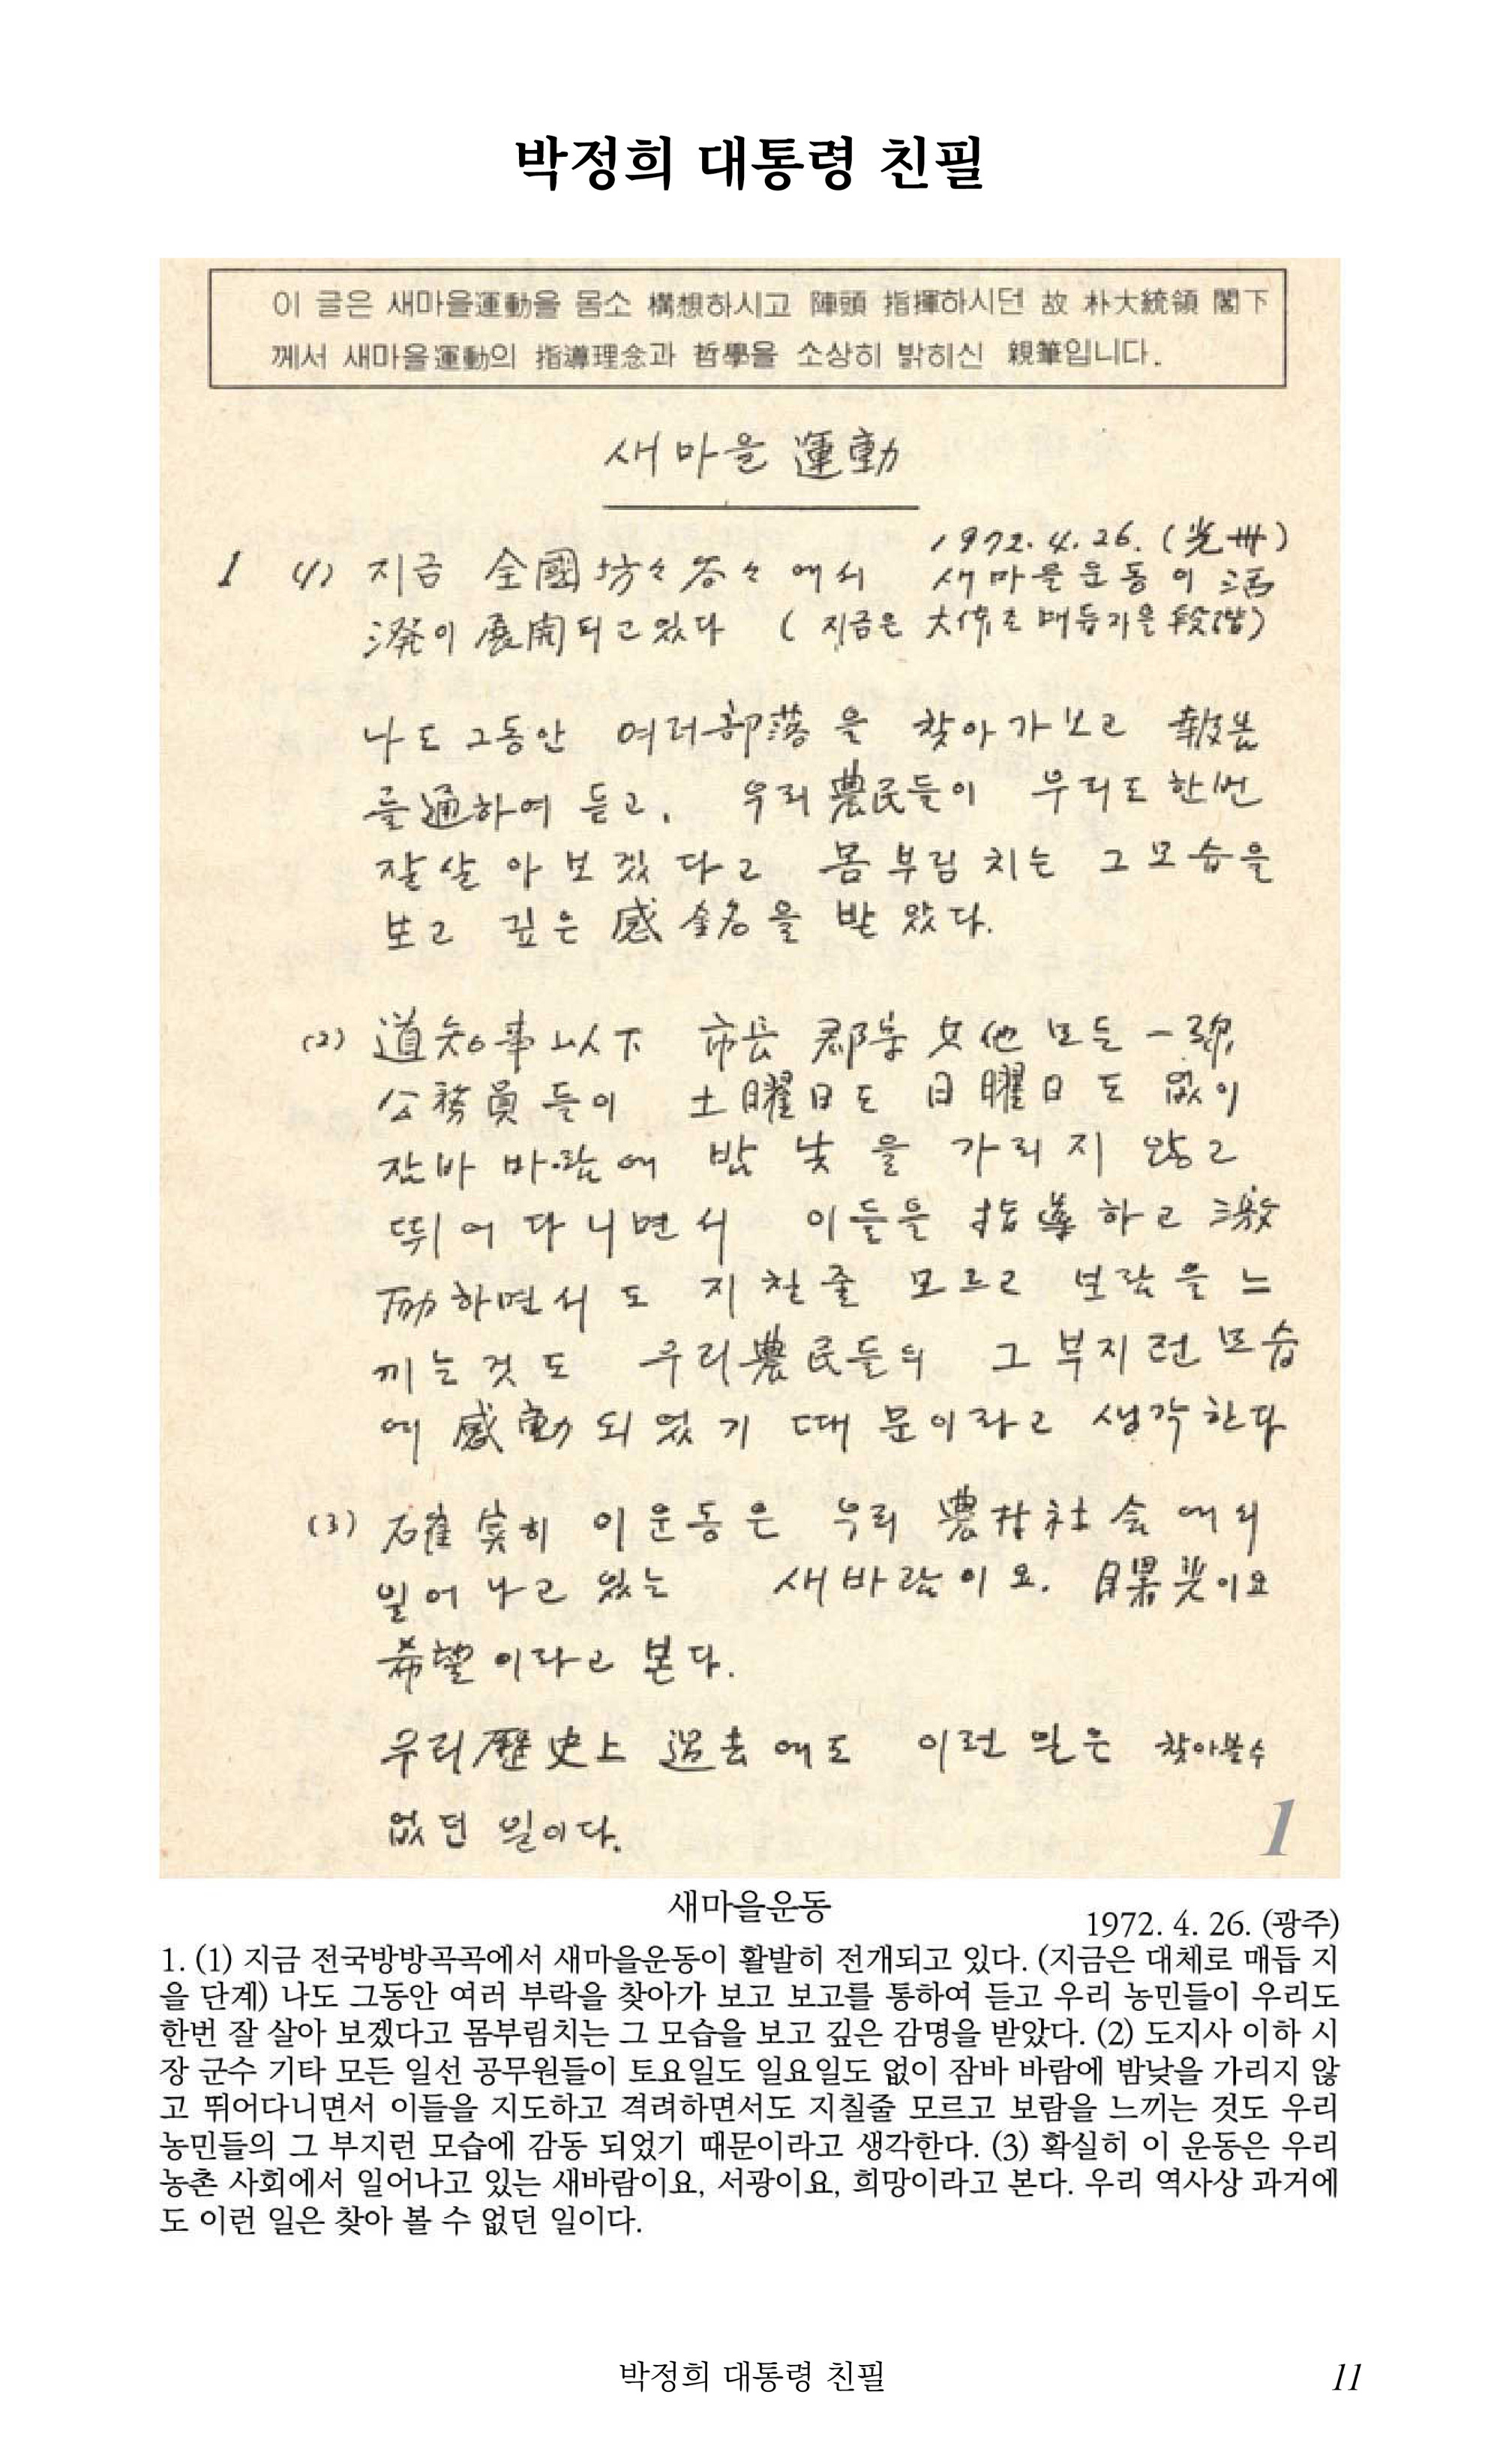 박정희 대통령 친필
이 글은 새마을運動을 몸소 構想하시고 陣頭 指揮하시던 故 朴大統領 閣下
께서 새마을運動의 指導理念과 哲學을 소상히 밝히신 親筆입니다.
새마을 運動
1972. 4. 26. (光州)
1 (1) 지금 全國坊々谷々에서 새마을운동이 活
潑이 展開되고있다 (지금은 大体로 매듭지을 段階)
나도 그동안 여러部落을 찾아가보고 報告
를通하여 듣고, 우리 農民들이 우리도 한번
잘살아보겠다고 몸부림치는 그모습을
보고 깊은 感銘을 받았다.
(2) 道知事以下 市長 郡守 其他 모든 一線
公務員들이 土曜日도 日曜日도 없이
잠바 바람에 밤낮을 가리지 않고
뛰어다니면서 이들을 指導하고 激
励하면서도 지칠줄 모르고 보람을 느
끼는것도 우리農民들의 그 부지런 모습
에 感動되었기 때문이라고 생각한다
(3) 確実히 이운동은 우리 農村社会에서
일어나고 있는 새바람이요. 曙光이요
希望이라고 본다.
우리歷史上 過去에도 이런 일은 찾아볼수
없던 일이다.
1
새마을운동
1972. 4. 26. (광주)
1. (1) 지금 전국방방곡곡에서 새마을운동이 활발히 전개되고 있다. (지금은 대체로 매듭 지
을 단계) 나도 그동안 여러 부락을 찾아가 보고 보고를 통하여 듣고 우리 농민들이 우리도
한번 잘 살아 보겠다고 몸부림치는 그 모습을 보고 깊은 감명을 받았다. (2) 도지사 이하 시
장 군수 기타 모든 일선 공무원들이 토요일도 일요일도 없이 잠바 바람에 밤낮을 가리지 않
고 뛰어다니면서 이들을 지도하고 격려하면서도 지칠줄 모르고 보람을 느끼는 것도 우리
농민들의 그 부지런 모습에 감동 되었기 때문이라고 생각한다. (3) 확실히 이 운동은 우리
농촌 사회에서 일어나고 있는 새바람이요, 서광이요, 희망이라고 본다. 우리 역사상 과거에
도 이런 일은 찾아 볼 수 없던 일이다.
박정희 대통령 친필
11